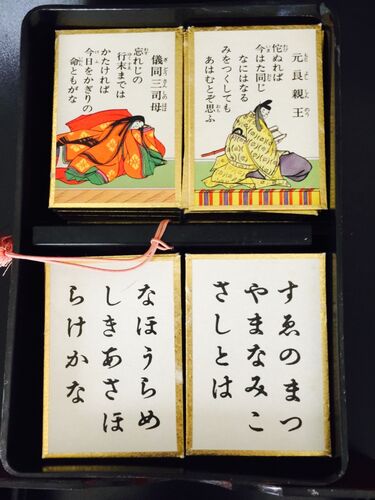 元良親王
侘ぬれば
今はた同じ
なにはなる
みをつくしても
あはむとぞ思ふ
儀同三司母
忘れじの
行末までは
かたければ
今日をかぎりの
命ともがな
すゑのまつ
やまなみこ
さしとは
なほうらめ
しきあさほ
らけかな